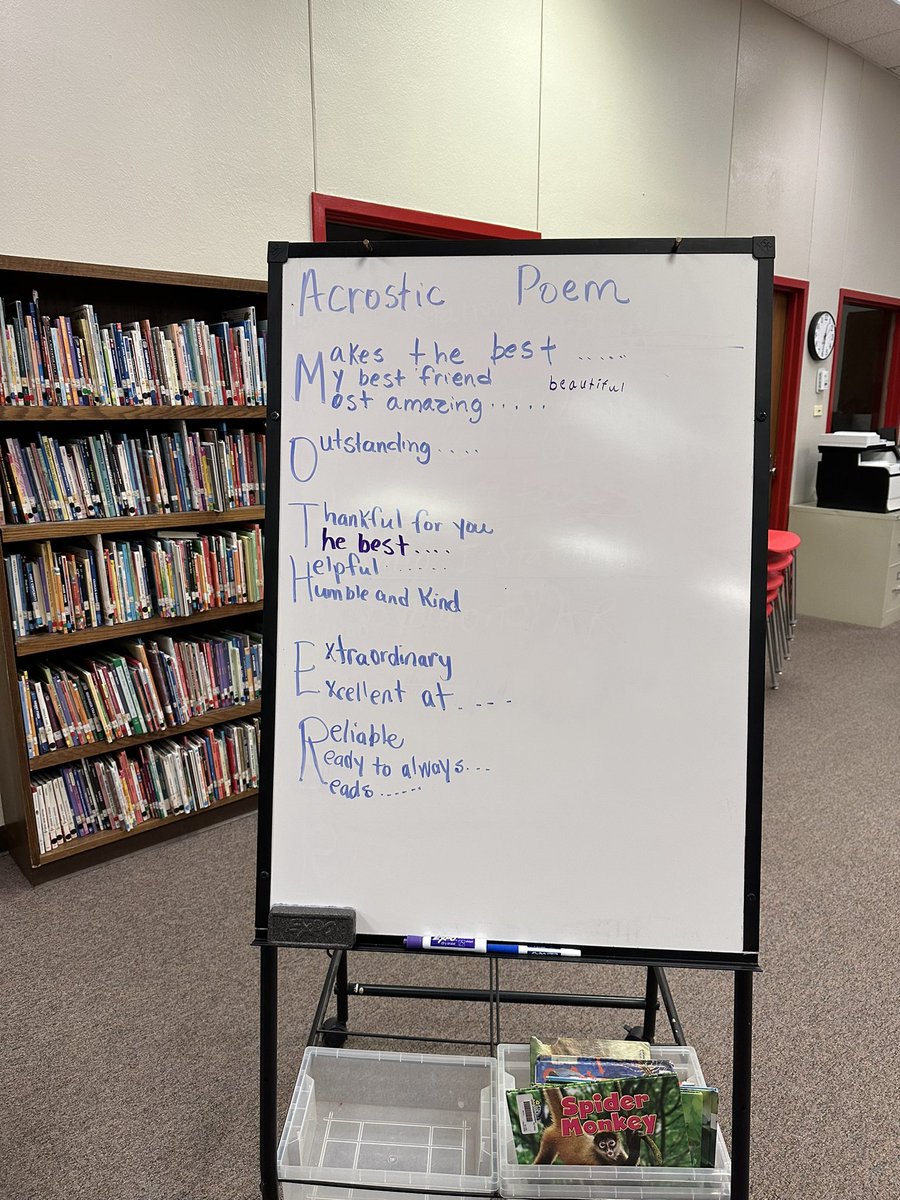 Acrostic Poem
Makes the best .....
My best friend
beautiful
Most amazing .....
Outstanding ....
Thankful for you
The best ....
Helpful ......
Humble and Kind
Extraordinary
Excellent at ----
Reliable
Ready to always...
Reads ......
EXPO
Spider
Monkey